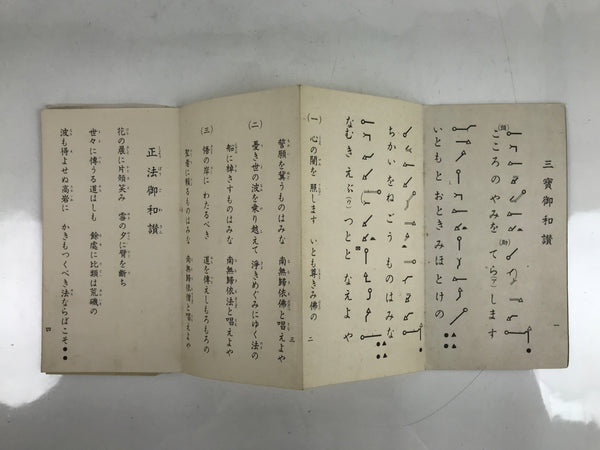 三寶御和讃
こころのやみを てら(ァ)します
いともとおときみほとけの
一
ちかいをねごう ものはみな
なむきえぶ(ウ)つとと なえよ や
(一) 心の闇を 照します いとも尊きみ佛の
二
誓願を冀うものはみな 南無歸依佛と唱えよや
(二) 憂き世の波を乗り越えて 淨きめぐみにゆく法の
船に棹さすものはみな 南無歸依法と唱えよや
三
(三) 悟の岸に わたるべき 道を傳えしもろもろの
聖者に頼るものはみな 南無歸依僧と唱えよや
正法御和讃
花の晨に片頬笑み 雪の夕に臂を斷ち
世々に傳うる道はしも 餘處に比類は荒磯の
波も得よせぬ高岩に かきもつくべき法ならばこそ
四